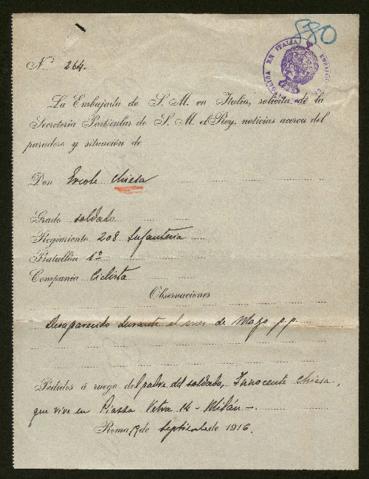 380
EMBAJADA EN ITALIA
Nº 264.
La Embajada de S. M. en Italia, solicita de la
Secretaría Particular de S. M. el Rey, noticias acerca del
paradero y situación de
Don Ercole Chiesa
Grado soldado
Regimiento 208 Infantería
Batallón 6º
Compañía Ciclista
Observaciones
Desaparecido durante el mes de Mayo p.p.
Pedidos á ruego del padre del soldado, Innocente Chiesa,
que vive en Piazza Vetra 14 - Milán -.
Roma, de septiembre 1916.